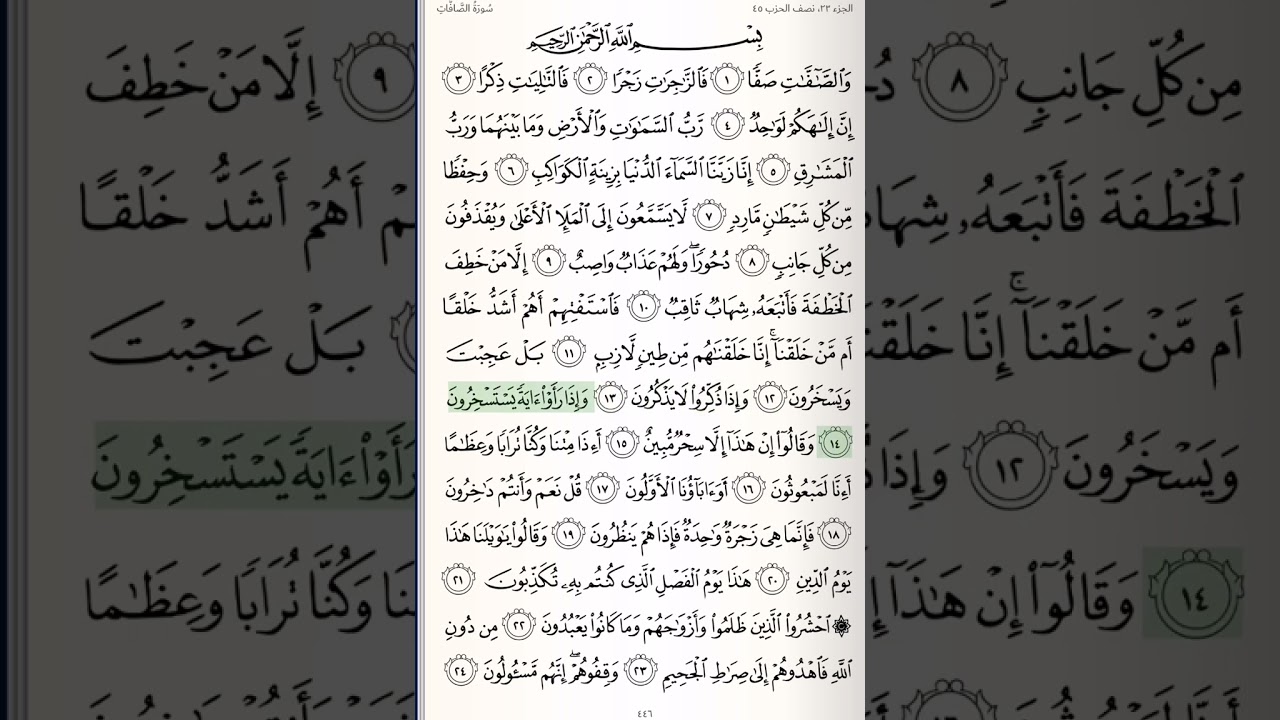 الجزء ٢٣، نصف الحزب ٤٥ سُورَةُ الصَّافَّاتِ
بِسْمِ ٱللَّهِ ٱلرَّحْمَٰنِ ٱلرَّحِيمِ
وَٱلصَّٰٓفَّٰتِ صَفًّا ١ فَٱلزَّٰجِرَٰتِ زَجْرًا ٢ فَٱلتَّٰلِيَٰتِ ذِكْرًا ٣
إِنَّ إِلَٰهَكُمْ لَوَٰحِدٌ ٤ رَّبُّ ٱلسَّمَٰوَٰتِ وَٱلْأَرْضِ وَمَا بَيْنَهُمَا وَرَبُّ
ٱلْمَشَٰرِقِ ٥ إِنَّا زَيَّنَّا ٱلسَّمَآءَ ٱلدُّنْيَا بِزِينَةٍ ٱلْكَوَاكِبِ ٦ وَحِفْظًا
مِّن كُلِّ شَيْطَٰنٍ مَّارِدٍ ٧ لَّا يَسَّمَّعُونَ إِلَى ٱلْمَلَإِ ٱلْأَعْلَىٰ وَيُقْذَفُونَ
مِن كُلِّ جَانِبٍ ٨ دُحُورًا ۖ وَلَهُمْ عَذَابٌ وَاصِبٌ ٩ إِلَّا مَنْ خَطِفَ
ٱلْخَطْفَةَ فَأَتْبَعَهُۥ شِهَابٌ ثَاقِبٌ ١٠ فَٱسْتَفْتِهِمْ أَهُمْ أَشَدُّ خَلْقًا
أَم مَّنْ خَلَقْنَآ ۚ إِنَّا خَلَقْنَٰهُم مِّن طِينٍ لَّازِبٍۭ ١١ بَلْ عَجِبْتَ
وَيَسْخَرُونَ ١٢ وَإِذَا ذُكِّرُوا۟ لَا يَذْكُرُونَ ١٣ وَإِذَا رَأَوْا۟ ءَايَةً يَسْتَسْخِرُونَ
١٤ وَقَالُوٓا۟ إِنْ هَٰذَآ إِلَّا سِحْرٌ مُّبِينٌ ١٥ أَءِذَا مِتْنَا وَكُنَّا تُرَابًا وَعِظَٰمًا
أَءِنَّا لَمَبْعُوثُونَ ١٦ أَوَءَابَآؤُنَا ٱلْأَوَّلُونَ ١٧ قُلْ نَعَمْ وَأَنتُمْ دَٰخِرُونَ
١٨ فَإِنَّمَا هِىَ زَجْرَةٌ وَٰحِدَةٌ فَإِذَا هُمْ يَنظُرُونَ ١٩ وَقَالُوا۟ يَٰوَيْلَنَا هَٰذَا
يَوْمُ ٱلدِّينِ ٢٠ هَٰذَا يَوْمُ ٱلْفَصْلِ ٱلَّذِى كُنتُم بِهِۦ تُكَذِّبُونَ ٢١
۞ ٱحْشُرُوا۟ ٱلَّذِينَ ظَلَمُوا۟ وَأَزْوَٰجَهُمْ وَمَا كَانُوا۟ يَعْبُدُونَ ٢٢ مِن دُونِ
ٱللَّهِ فَٱهْدُوهُمْ إِلَىٰ صِرَٰطِ ٱلْجَحِيمِ ٢٣ وَقِفُوهُمْ ۖ إِنَّهُم مَّسْـُٔولُونَ ٢٤
٤٤٦